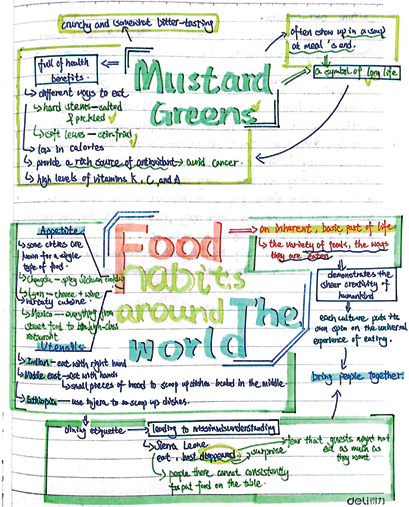 crunchy and somewhat bitter-tasting
often show up in a soup
at meal's end.
a symbol of long life
full of health
benefits.
Mustard
Greens
different ways to eat
hard stems—salted
& pickled
soft leaves—stir-fried
low in calories
provide a rich source of antioxidant→ avoid cancer.
high levels of vitamins K, C, and A
Food
habits
around The
world
Appetite
some cities are
known for a single
type of food.
Chengdu—spicy Sichuan
Lyon—cheese + wine
variety cuisine
Mexico—everything from
street food to high-class
restaurant
Utensils
Indian—eat with right hand
Middle east—eat with hands
small pieces of bread to scoop up dishes in the middle.
Ethiopia—use injera to scoop up dishes.
an inherent, basic part of life
the variety of foods, the ways
they are eaten
demonstrates the
sheer creativity of
humankind
each culture puts its
own spin on the universal
experience of eating.
bring people together.
dining etiquette
leading to misunderstanding
Sierra Leone
eat, host disappeared
surprise
fear that guests might not
eat as much as
they want
people there cannot consistently
put food on the table.
deli